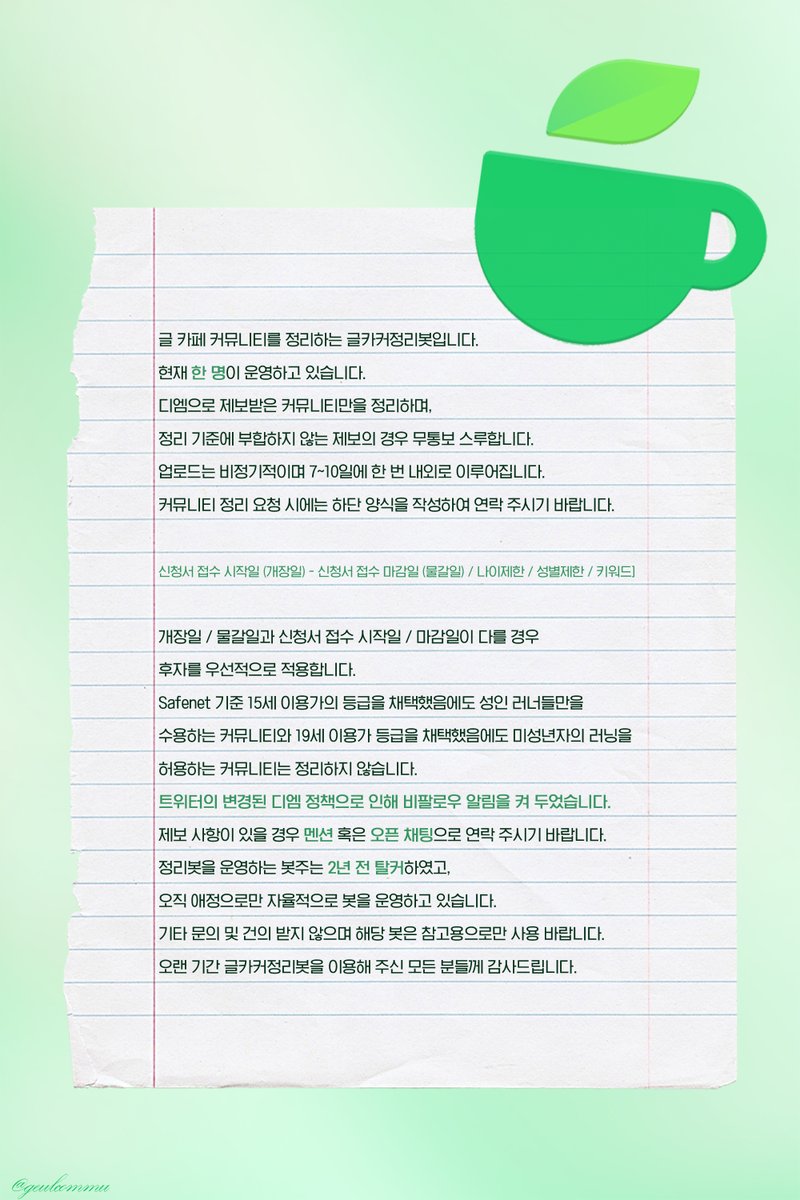 글 카페 커뮤니티를 정리하는 글카커정리봇입니다.
현재 한 명이 운영하고 있습니다.
디엠으로 제보받은 커뮤니티만을 정리하며,
정리 기준에 부합하지 않는 제보의 경우 무통보 스루합니다.
업로드는 비정기적이며 7~10일에 한 번 내외로 이루어집니다.
커뮤니티 정리 요청 시에는 하단 양식을 작성하여 연락 주시기 바랍니다.
신청서 접수 시작일 (개장일) - 신청서 접수 마감일 (물갈일) / 나이제한 / 성별제한 / 키워드]
개장일 / 물갈일과 신청서 접수 시작일 / 마감일이 다를 경우
후자를 우선적으로 적용합니다.
Safenet 기준 15세 이용가의 등급을 채택했음에도 성인 러너들만을
수용하는 커뮤니티와 19세 이용가 등급을 채택했음에도 미성년자의 러닝을
허용하는 커뮤니티는 정리하지 않습니다.
트위터의 변경된 디엠 정책으로 인해 비팔로우 알림을 켜 두었습니다.
제보 사항이 있을 경우 멘션 혹은 오픈 채팅으로 연락 주시기 바랍니다.
정리봇을 운영하는 봇주는 2년 전 탈커하였고,
오직 애정으로만 자율적으로 봇을 운영하고 있습니다.
기타 문의 및 건의 받지 않으며 해당 봇은 참고용으로만 사용 바랍니다.
오랜 기간 글카커정리봇을 이용해 주신 모든 분들께 감사드립니다.
@geulcommu